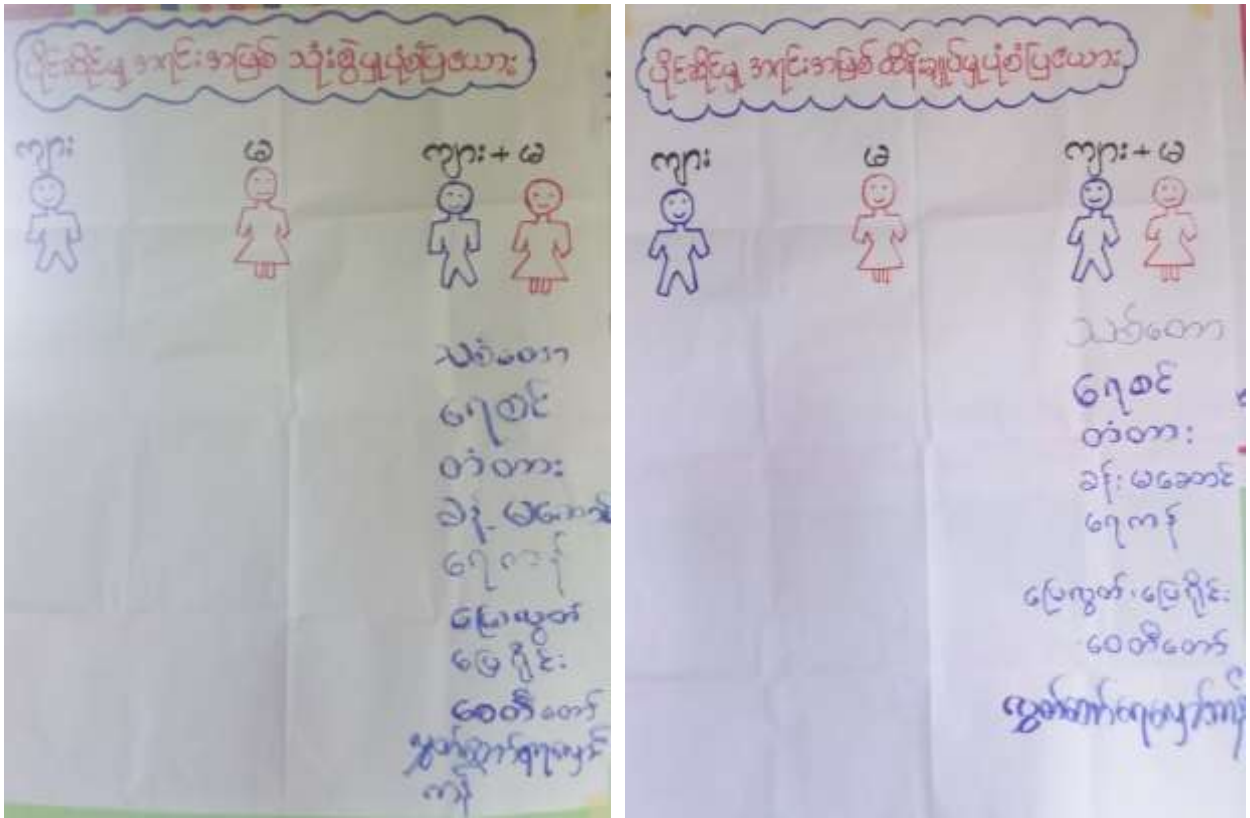 ပိုင်ဆိုင်မှု အရင်းအမြစ် သုံးစွဲမှုပုံစံပြဇယား
ကျား မ ကျား + မ
သစ်တော
ရေစင်
တံတား
ခန်းမဆောင်
ရေကန်
မြေလွတ်
မြေရိုင်း
စေတီတော်
ကန်
ပိုင်ဆိုင်မှု အရင်းအမြစ် ထိန်းချုပ်မှုပုံစံပြဇယား
ကျား မ ကျား + မ
သစ်တော
ရေစင်
တံတား
ခန်းမဆောင်
ရေကန်
မြေလွတ် ၊ မြေရိုင်း
စေတီတော်